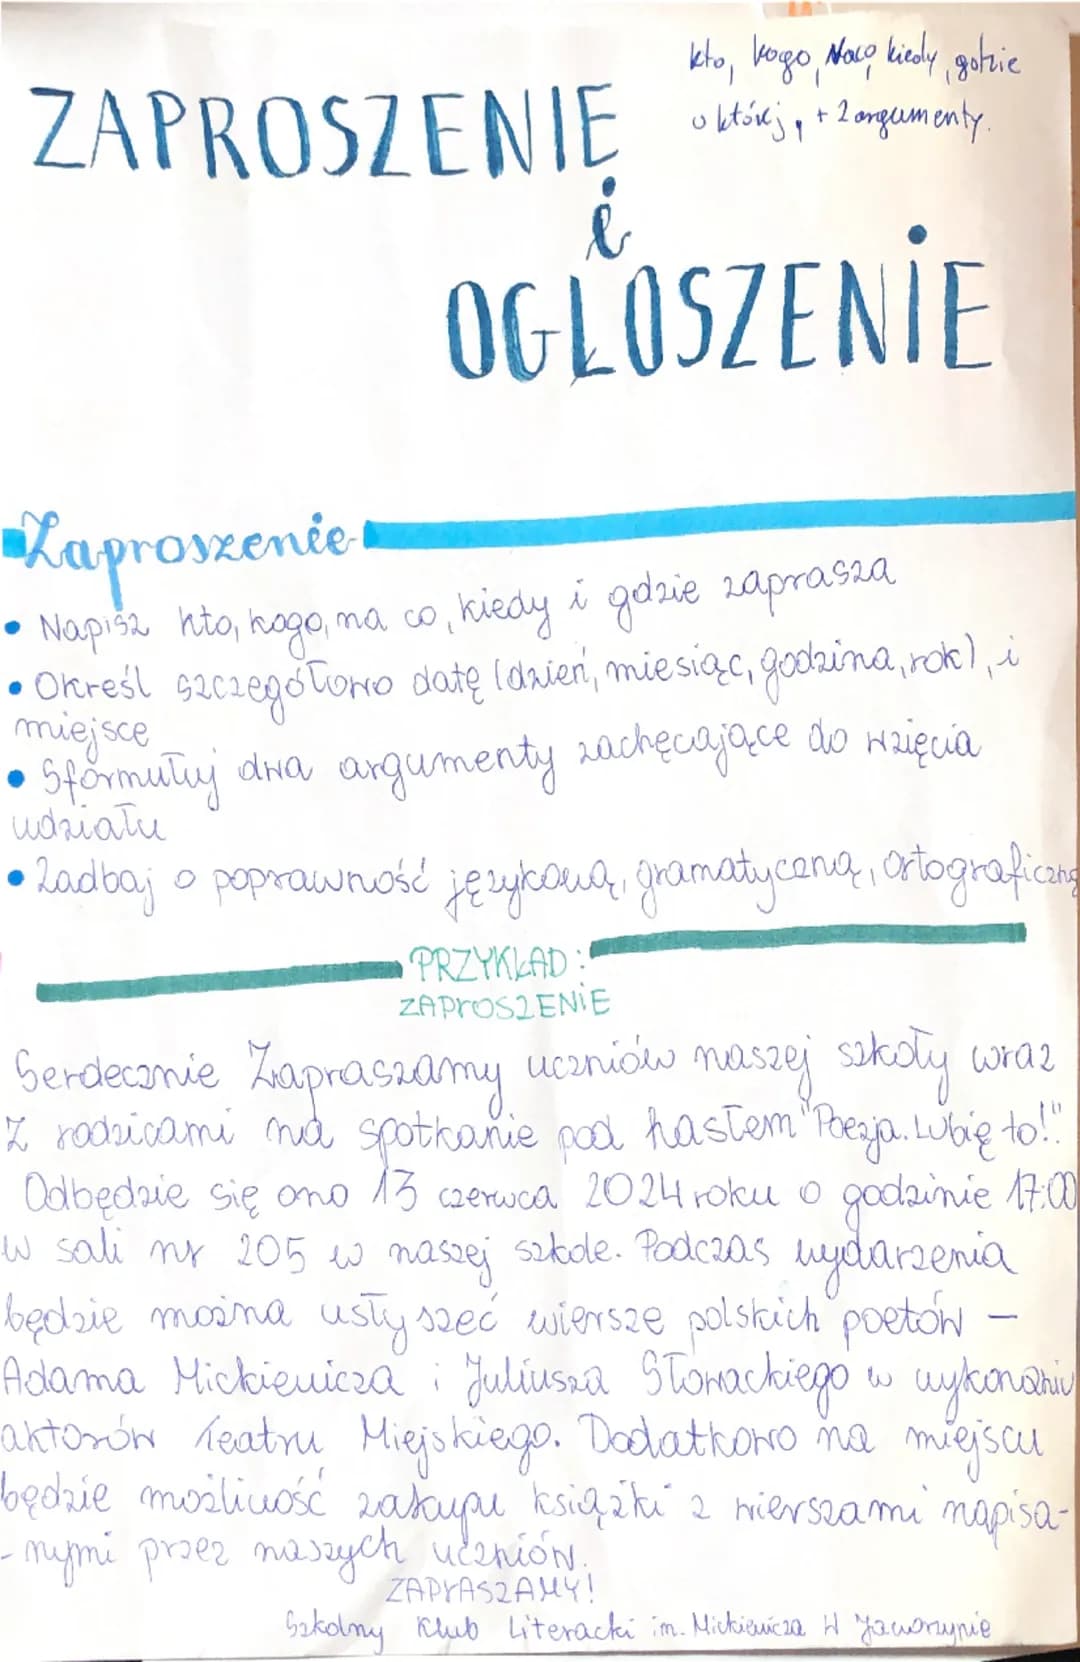 kto, kogo, Naco, kiedy, gdzie
o której, + 2 argumenty.
ZAPROSZENIE
i
OGŁOSZENIE
Zaproszenie
• Napisz kto, kogo, na co, kiedy i gdzie zaprasza
• Określ szczegółowo datę (dzień, miesiąc, godzina, rok), i
miejsce
• Sformułuj dwa argumenty zachęcające do wzięcia
udziału
• Zadbaj o poprawność językową, gramatyczną, ortograficzną
PRZYKŁAD:
ZAPROSZENIE
Serdecznie Zapraszamy uczniów naszej szkoły wraz
z rodzicami na spotkanie pod hasłem "Poezja. Lubię to!".
Odbędzie się ono 13 czerwca 2024 roku o godzinie 17:00
w sali nr 205 w naszej szkole. Podczas wydarzenia
będzie można usłyszeć wiersze polskich poetów –
Adama Mickiewicza i Juliusza Słowackiego w wykonaniu
aktorów Teatru Miejskiego. Dodatkowo na miejscu
będzie możliwość zakupu książki z wierszami napisa-
-nymi przez naszych uczniów.
ZAPRASZAMY!
Szkolny Klub Literacki im. Mickiewicza W Jaworzynie